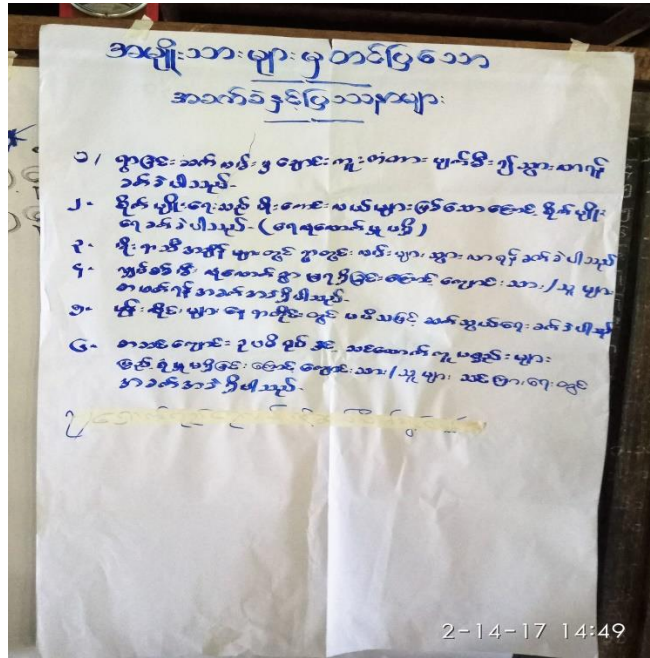 အမျိုးသားများမှတင်ပြသော
အခက်ခဲနှင့်ပြဿနာများ
၁/ ရွာခြင်းဆက်လမ်းမှချောင်းကူးတံတား ပျက်စီး၍သွားလာရန်
ခက်ခဲပါသည်-
၂- စိုက်ပျိုးရေးသည် မိုးကောင်းလယ်များဖြစ်သောကြောင့် စိုက်ပျိုး
ရေခက်ခဲပါသည်- (ရေရလောက်မှုမရှိ)
၃- မိုးရာသီအချိန်များတွင် ရွာတွင်းလမ်းများသွားလာရန်ခက်ခဲပါသည်
၄- လျှပ်စစ်မီး လုံလောက်စွာ မရရှိခြင်းကြောင့် ကျောင်းသား/သူများ
စာဖတ်ရန်အခက်အခဲရှိပါသည်-
၅- ဖုန်းလိုင်းများ နေရာတိုင်းတွင် မမိသဖြင့် ဆက်သွယ်ရေးခက်ခဲပါသည်
၆- စာသင်ကျောင်းဥပဓိရုပ်နှင့် သင်ထောက်ကူပစ္စည်းများ
ပြည့်စုံမှုမရှိခြင်းကြောင့်ကျောင်းသား/သူများ သင်ကြားရေးတွင်
အခက်အခဲရှိပါသည်-
၇/
2-14-17 14:49